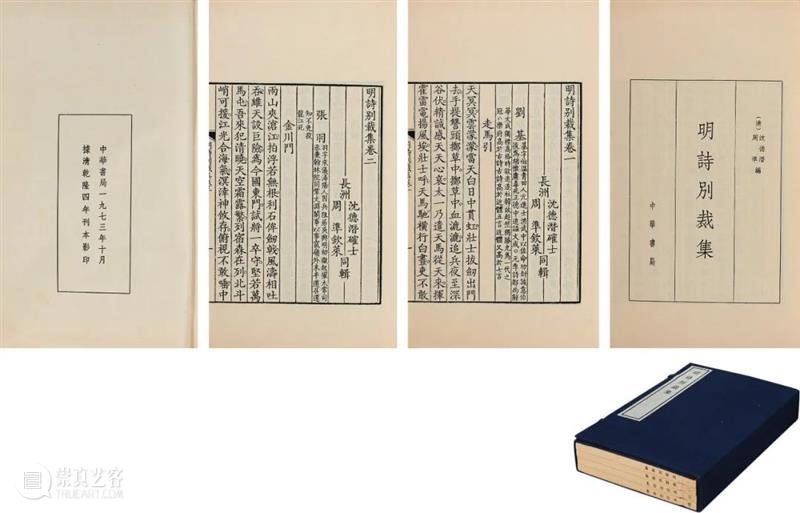 （清）沈德潛
周準 編
明詩別裁集
中華書局
明詩別裁集卷一
沈德潛確士
長洲 同輯
周準欽萊
劉基
走馬引
天冥冥雲濛濛當天白日中貫虹壯士拔劒出門
去手提讐頭擲草中擲草中血漉漉追兵夜至深
谷伏精誠感天天心哀太一乃遣天馬從天來揮
霍雷電揚風埃壯士呼天馬馳橫行白晝吏不敢
明詩別裁集卷二
沈德潛確士
長洲 同輯
周準欽萊
張羽
金川門
兩山夾滄江拍浮若無根利石侔劒戟風濤相吐
吞維天設巨險為今國東門試將一卒守堅若萬
馬屯吾來犯清曉天空霜露繁列宿森在列北斗
峭可援江光合海氣溟涬神攸存俯視不敢唾中
中華書局一九七三年十月
據清乾隆四年刊本影印
明詩別裁集
崇真艺客
TRUEART.COM